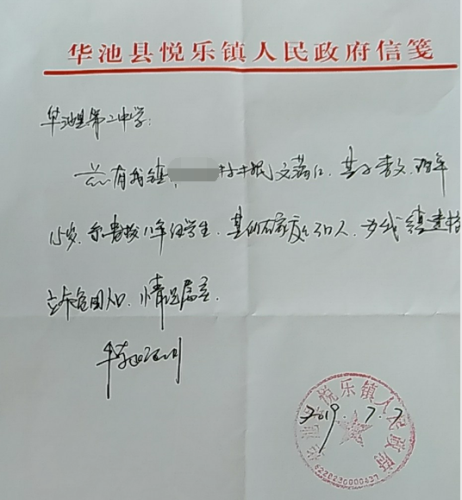 华池县悦乐镇人民政府信笺
华池县第二中学:
兹有我镇 村村民文 , 其子李文, 现年
15岁, 系贵校 年级学生, 其所在家庭 口人, 为我镇建档
立卡贫困人口, 情况属实.
特此证明
2019.7.2
华池县悦乐镇人民政府